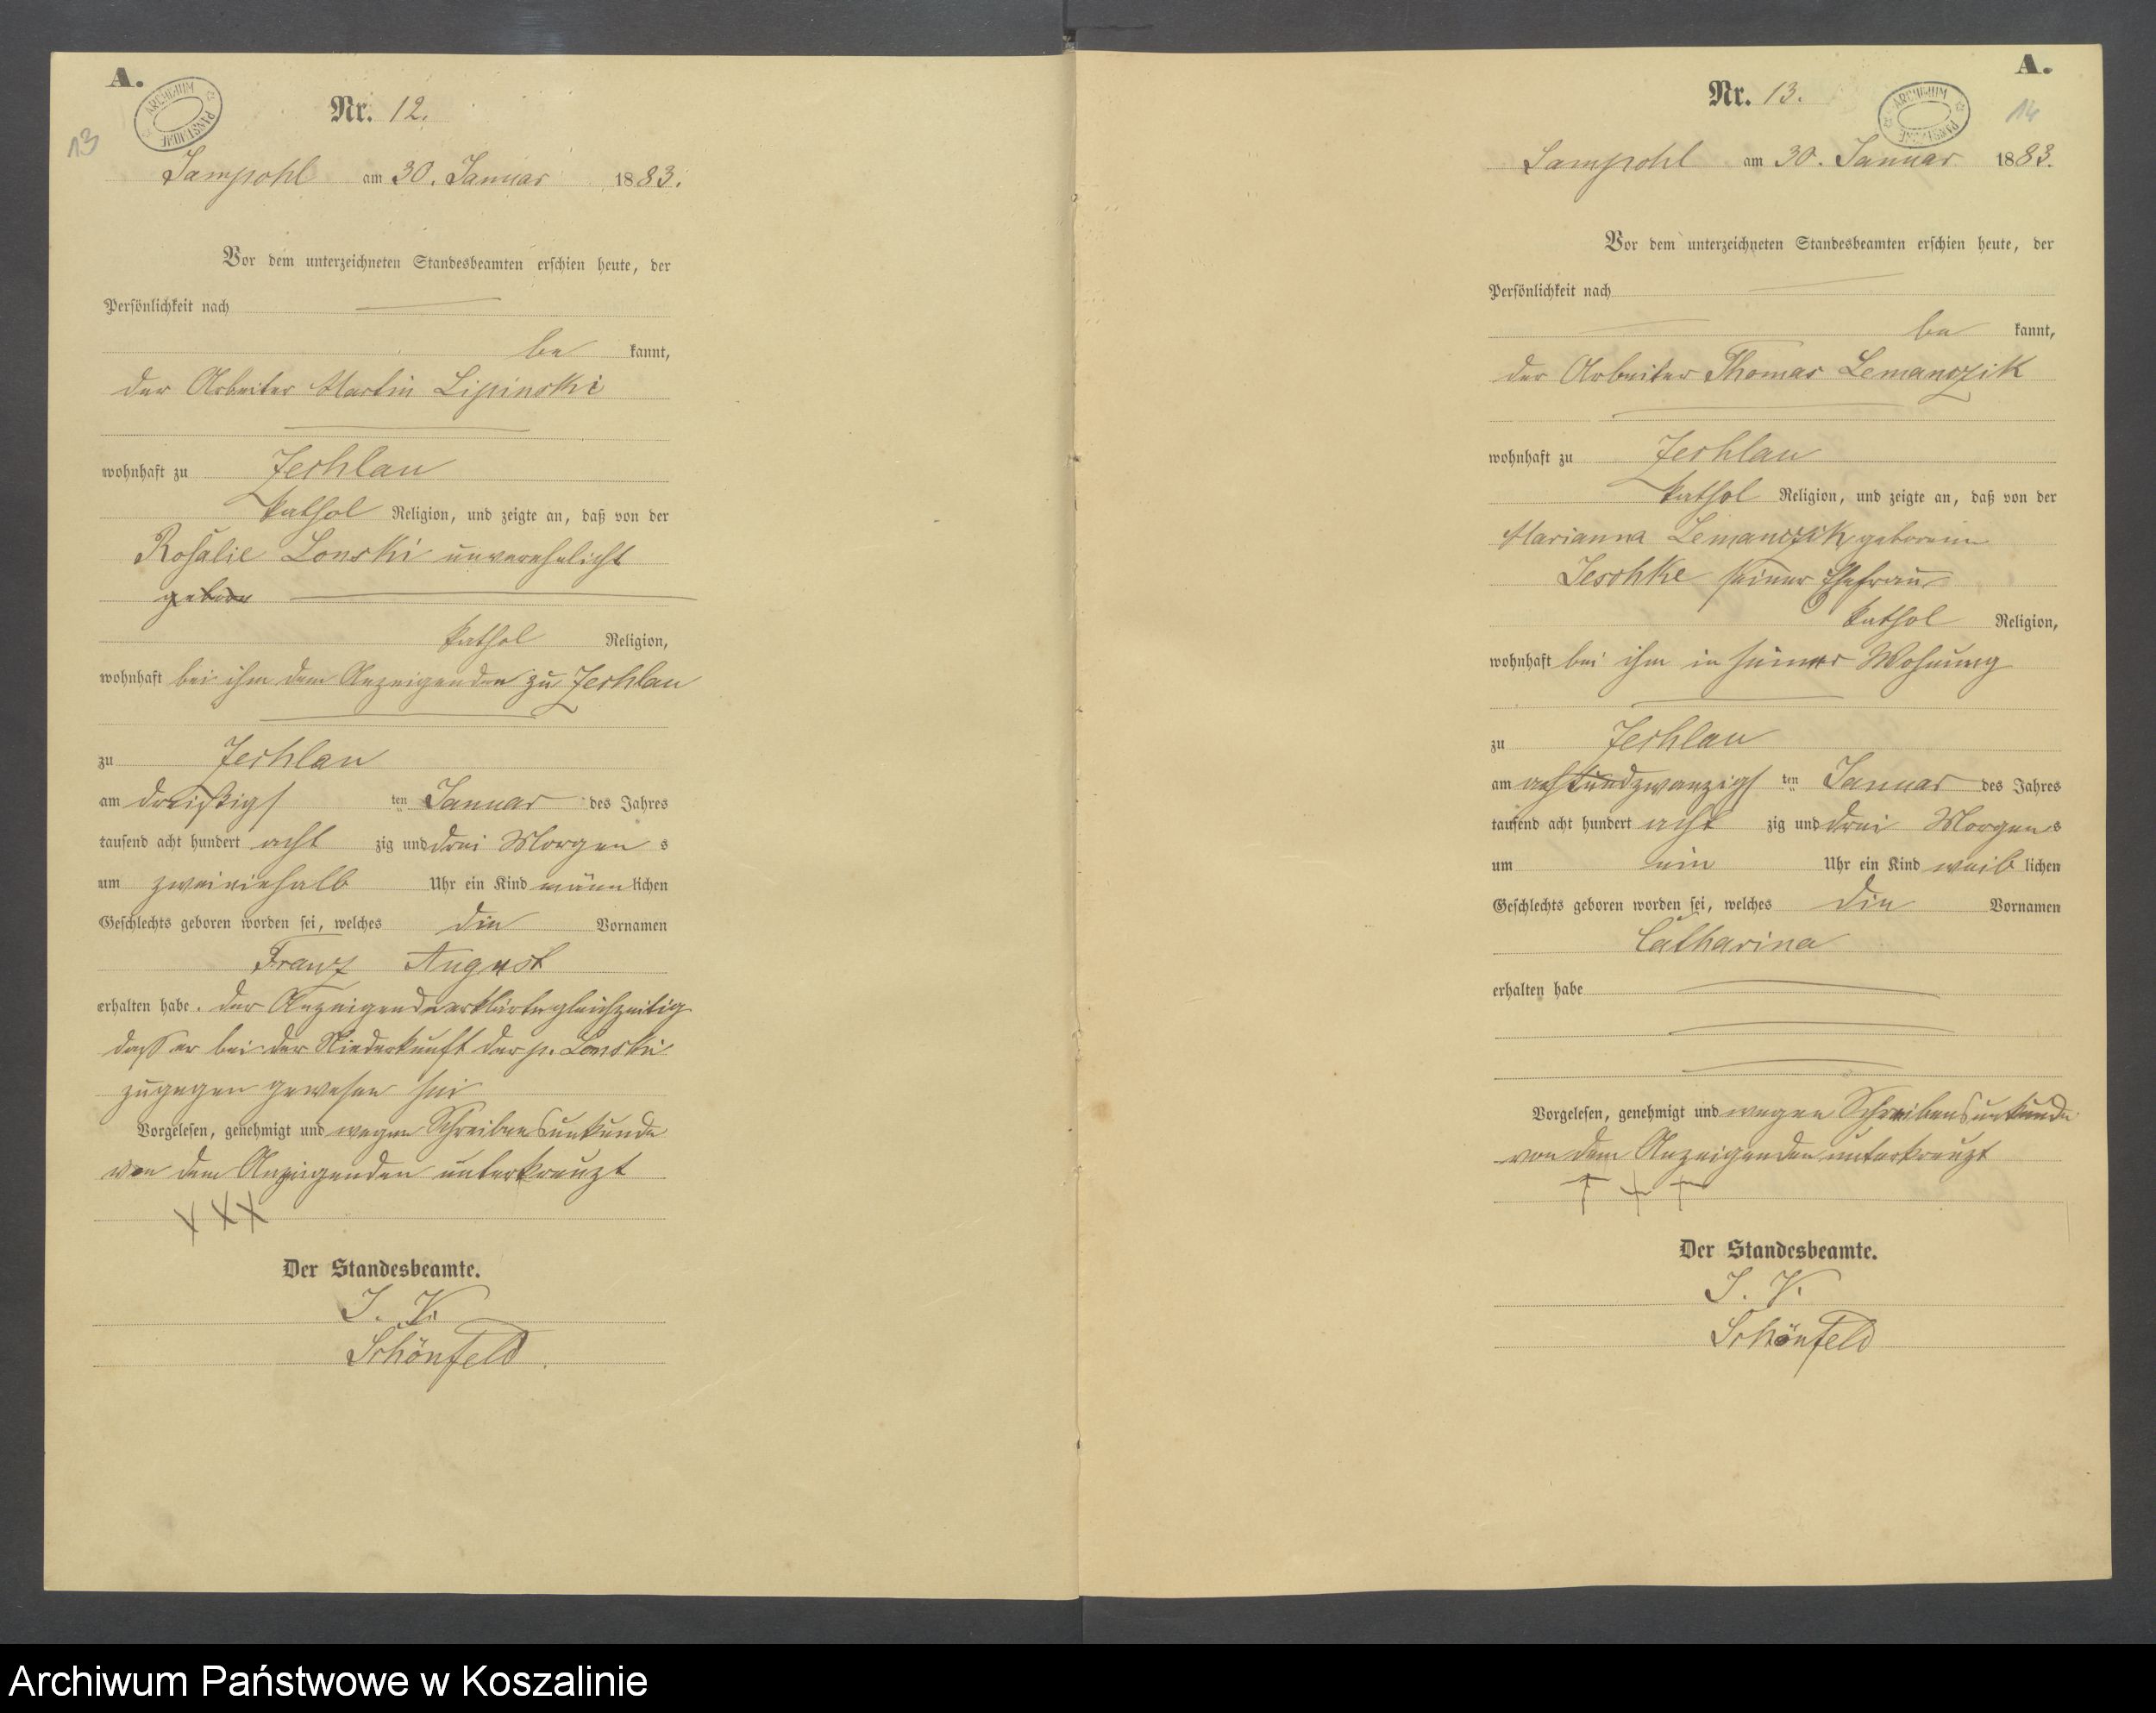 A.
13
ARCHIWUM PAŃSTWOWE
Nr. 12.
Sampohl am 30. Januar 1883.
Vor dem unterzeichneten Standesbeamten erschien heute, der
Persönlichkeit nach
be kannt,
der Arbeiter Martin Lipinski
wohnhaft zu Zechlau
kathol Religion, und zeigte an, daß von der
Rosalie Lonski unverehelicht
geboren
kathol Religion,
wohnhaft bei ihm dem Anzeigenden zu Zechlau
zu Zechlau
am dreißigsten Januar des Jahres
tausend acht hundert acht zig und drei Morgens
um zweieinhalb Uhr ein Kind männ lichen
Geschlechts geboren worden sei, welches die Vornamen
Franz August
erhalten habe. der Anzeigende erklärte gleichzeitig
daß er bei der Niederkunft der p. Lonski
zugegen gewesen sei
Vorgelesen, genehmigt und wegen Schreibensunkunde
von dem Anzeigenden unterkreuzt
XXX
Der Standesbeamte.
I. V.
Schönfeld.
A.
14
ARCHIWUM PAŃSTWOWE
Nr. 13.
Sampohl am 30. Januar 1883.
Vor dem unterzeichneten Standesbeamten erschien heute, der
Persönlichkeit nach
be kannt,
der Arbeiter Thomas Lemanczik
wohnhaft zu Zechlau
kathol Religion, und zeigte an, daß von der
Marianna Lemanczik geborene
Jeschke seiner Ehefrau
kathol Religion,
wohnhaft bei ihm in seiner Wohnung
zu Zechlau
am achtundzwanzigsten Januar des Jahres
tausend acht hundert acht zig und drei Morgens
um ein Uhr ein Kind weib lichen
Geschlechts geboren worden sei, welches die Vornamen
Catharina
erhalten habe
Vorgelesen, genehmigt und wegen Schreibensunkunde
von dem Anzeigenden unterkreuzt
+ + +
Der Standesbeamte.
I. V.
Schönfeld
Archiwum Państwowe w Koszalinie